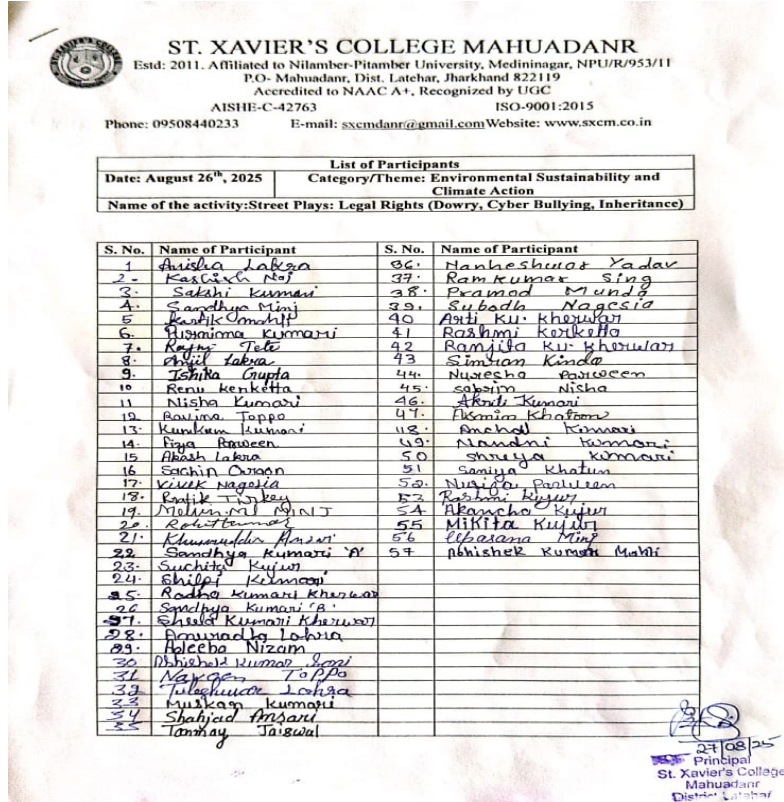 ST. XAVIER'S COLLEGE MAHUADANR
Estd: 2011. Affiliated to Nilamber-Pitamber University, Medininagar, NPU/R/953/11
P.O- Mahuadanr, Dist. Latehar, Jharkhand 822119
Accredited to NAAC A+, Recognized by UGC
AISHE-C-42763 ISO-9001:2015
Phone: 09508440233 E-mail: sxcmdanr@gmail.com Website: www.sxcm.co.in
List of Participants
Date: August 26th, 2025 Category/Theme: Environmental Sustainability and
Climate Action
Name of the activity:Street Plays: Legal Rights (Dowry, Cyber Bullying, Inheritance)
S. No. Name of Participant S. No. Name of Participant
1 Anisha Lakra 36. Nanheshwar Yadav
2- Kashish Naj 37. Ramkumar Sing
3. Sakshi Kumari 38. Pramod Munda
4. Sandhya Minj 39. Subodh Nagesia
5 Kartik 40 Arti Ku. Kherwar
6. Purnima Kumari 41 Rashmi Kerketta
7. Tete 42 Ranjita Ku. Kherwar
8. Anjil Lakra 43 Simran Kindo
9. Ishika Gupta 44. Nuresha Parween
10 Renu Kerketta 45. Nisha
11 Nisha Kumari 46. Akriti Kumari
12 Ravina Toppo 47. Khatoon
13. Kumkum Kumari 48. Anchal Kumari
14. Fiza Parween 49. Nandni Kumari
15 Akash Lakra 50 Shreya Kumari
16 Sachin Oraon 51 Saniya Khatun
17. Vivek Nagesia 52. Parween
18. Pratik Tirkey 53 Rashmi Kujur
19. MINJ 54 Akancha Kujur
20. Rohit Kumar 55 Nikita Kujur
21. Ansari 56 Minj
22 Sandhya Kumari 'A' 57 Abhishek Kumar
23. Suchita Kujur
24. Shilpi Kumari
25. Radha Kumari Kherwar
26 Sandhya Kumari 'B'
27. Sheela Kumari Kherwar
28. Anuradha Lohra
29. Adeeba Nizam
30 Abhishek Kumar Soni
31 Toppo
32 Tuleshwar Lohra
33 Muskan Kumari
34 Shahjad Ansari
35 Tanmay Jaiswal
27/08/25
Principal
St. Xavier's College
Mahuadanr
District Latehar